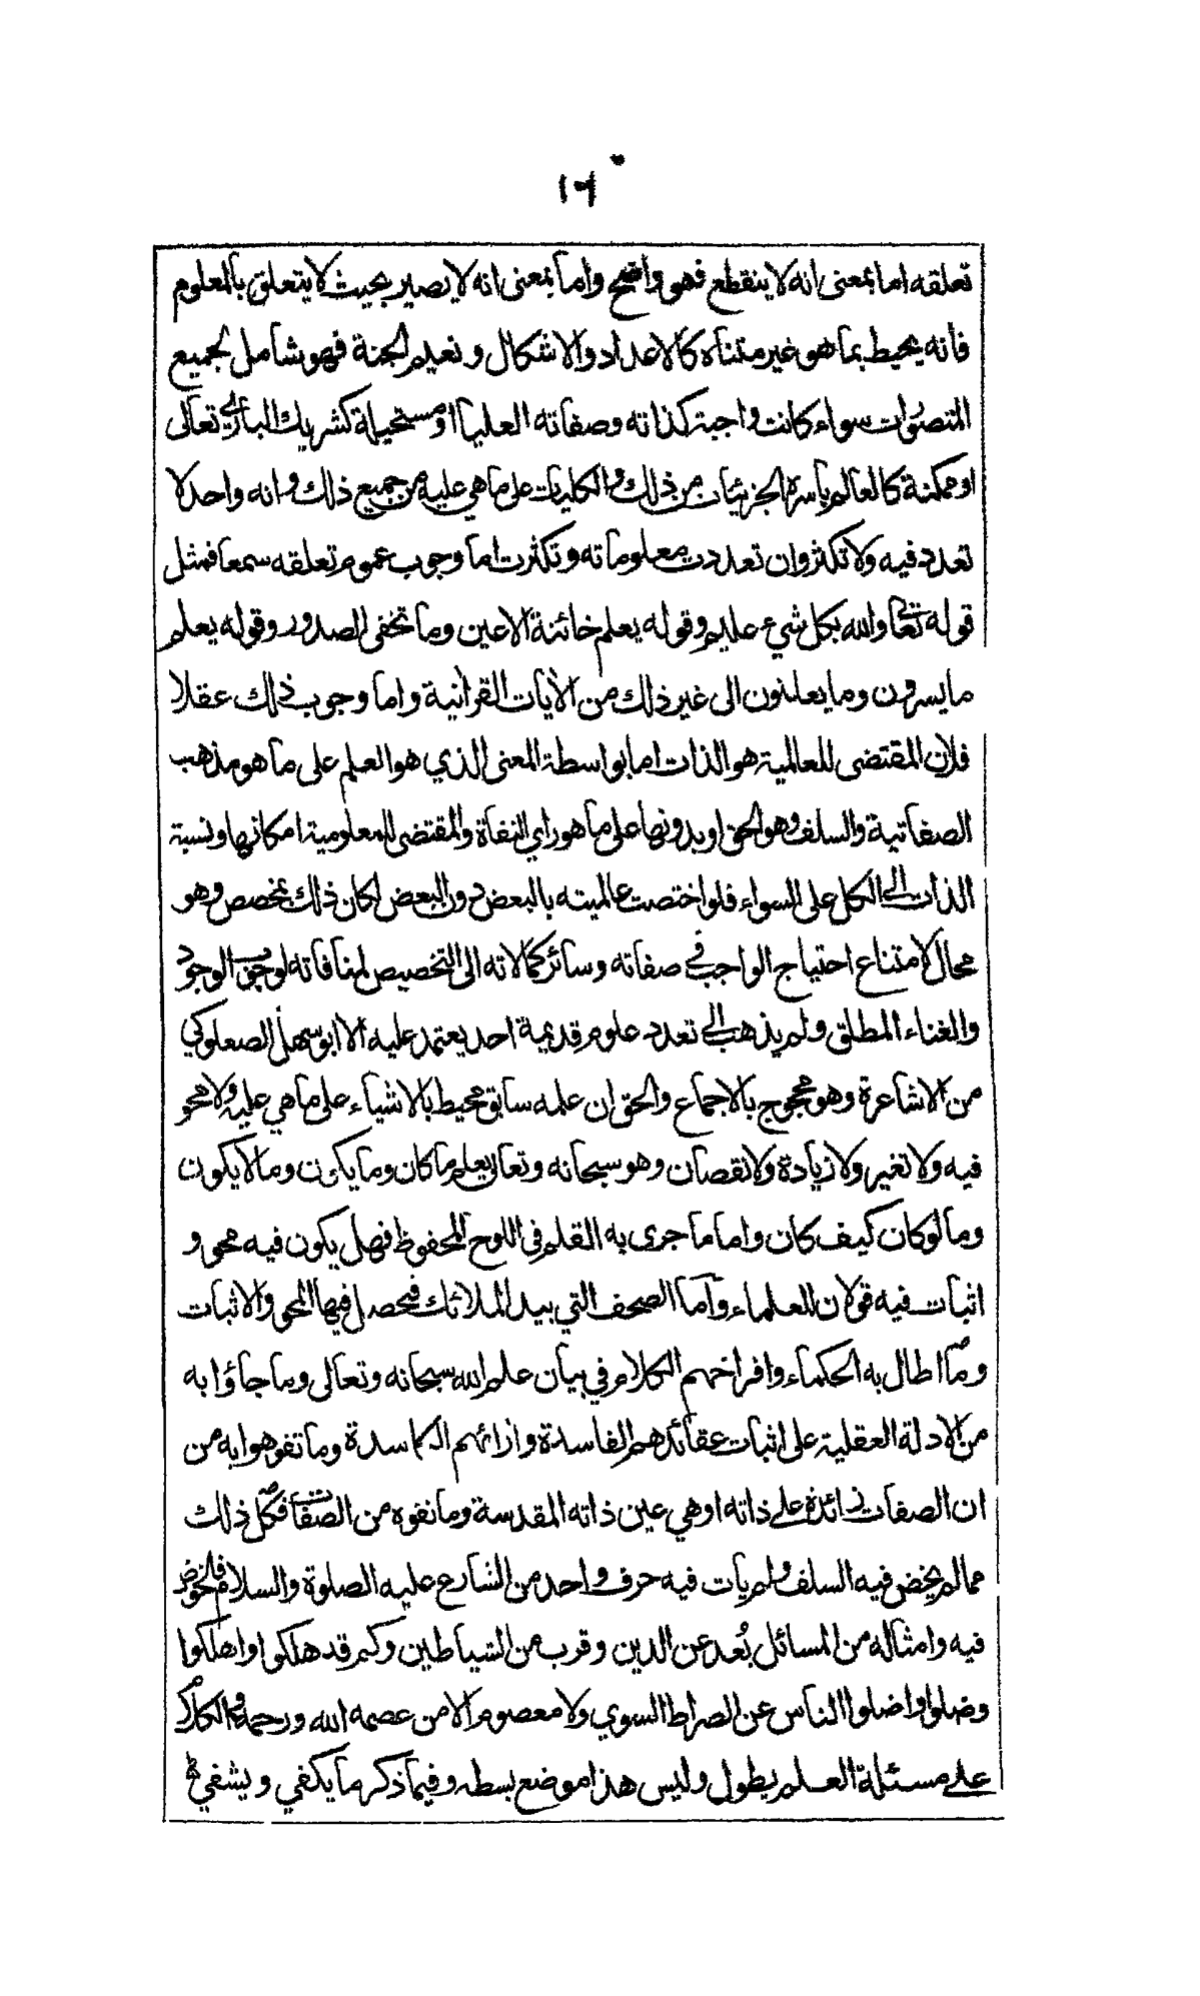 ١٦
تعلقه اما بمعنى انه لا ينقطع فهو واضح واما بمعنى انه لا يصير بحيث لا يتعلق بالمعلوم
فانه يحيط بما هو غير متناه كالاعداد والاشكال ونعيم الجنة فهو شامل لجميع
المتصورات سواء كانت واجبة كذاته وصفاته العليا او مستحيلة كشريك البارى تعالى
او ممكنة كالعالم باسره الجزئيات من ذلك والكليات على ما هي عليه من جميع ذلك وانه واحد لا
تعدد فيه ولا تكثر وان تعددت معلوماته وتكثرت اما وجوب عموم تعلقه سمعا فمثل
قوله تعالى والله بكل شيء عليم وقوله يعلم خائنة الاعين وما تخفى الصدور وقوله يعلم
ما يسرون وما يعلنون الى غير ذلك من الآيات القرانية واما وجوب ذلك عقلا
فلان المقتضى للعالمية هو الذات اما بواسطة المعنى الذي هو العلم على ما هو مذهب
الصفاتية والسلف وهو الحق او بدونها على ما هو راي النفاة والمقتضى للمعلومية امكانها ونسبة
الذات الى الكل على السواء فلو اختصت عالميته بالبعض دون البعض لكان ذلك بمخصص وهو
محال لامتناع احتياج الواجب في صفاته وسائر كمالاته الى التخصيص لمنافاته لوجوب الوجود
والغناء المطلق ولم يذهب الى تعدد علوم قديمة احد يعتمد عليه الا ابو سهل الصعلوكي
من الاشاعرة وهو محجوج بالاجماع والحق ان علمه سابق محيط بالاشياء على ما هي عليه ولا محو
فيه ولا تغير ولا زيادة ولا نقصان وهو سبحانه وتعالى يعلم ما كان وما يكون وما لا يكون
وما لو كان كيف كان واما ما جرى به القلم في اللوح المحفوظ فهل يكون فيه محو و
اثبات فيه قولان للعلماء وأما الصحف التي بيد الملائكة فيحصل فيها المحو والاثبات
وما اطال به الحكماء وافراخهم الكلام في بيان علم الله سبحانه وتعالى وما جاؤا به
من الادلة العقلية على اثبات عقائدهم الفاسدة وارائهم الكاسدة وما تفوهوا به من
ان الصفات زائدة على ذاته او هي عين ذاته المقدسة وما نفوه من الصفات فكل ذلك
مما لم يخض فيه السلف ولم يأت فيه حرف واحد من الشارع عليه الصلوة والسلام فالخوض
فيه وامثاله من المسائل بُعد عن الدين وقرب من الشياطين وكم قد هلكوا واهلكوا
وضلوا واضلوا الناس عن الصراط السوي ولا معصوم الا من عصمه الله ورحمه والكلام
على مسئلة العلم يطول وليس هذا موضع بسطه وفيما ذكر ما يكفي ويشفي